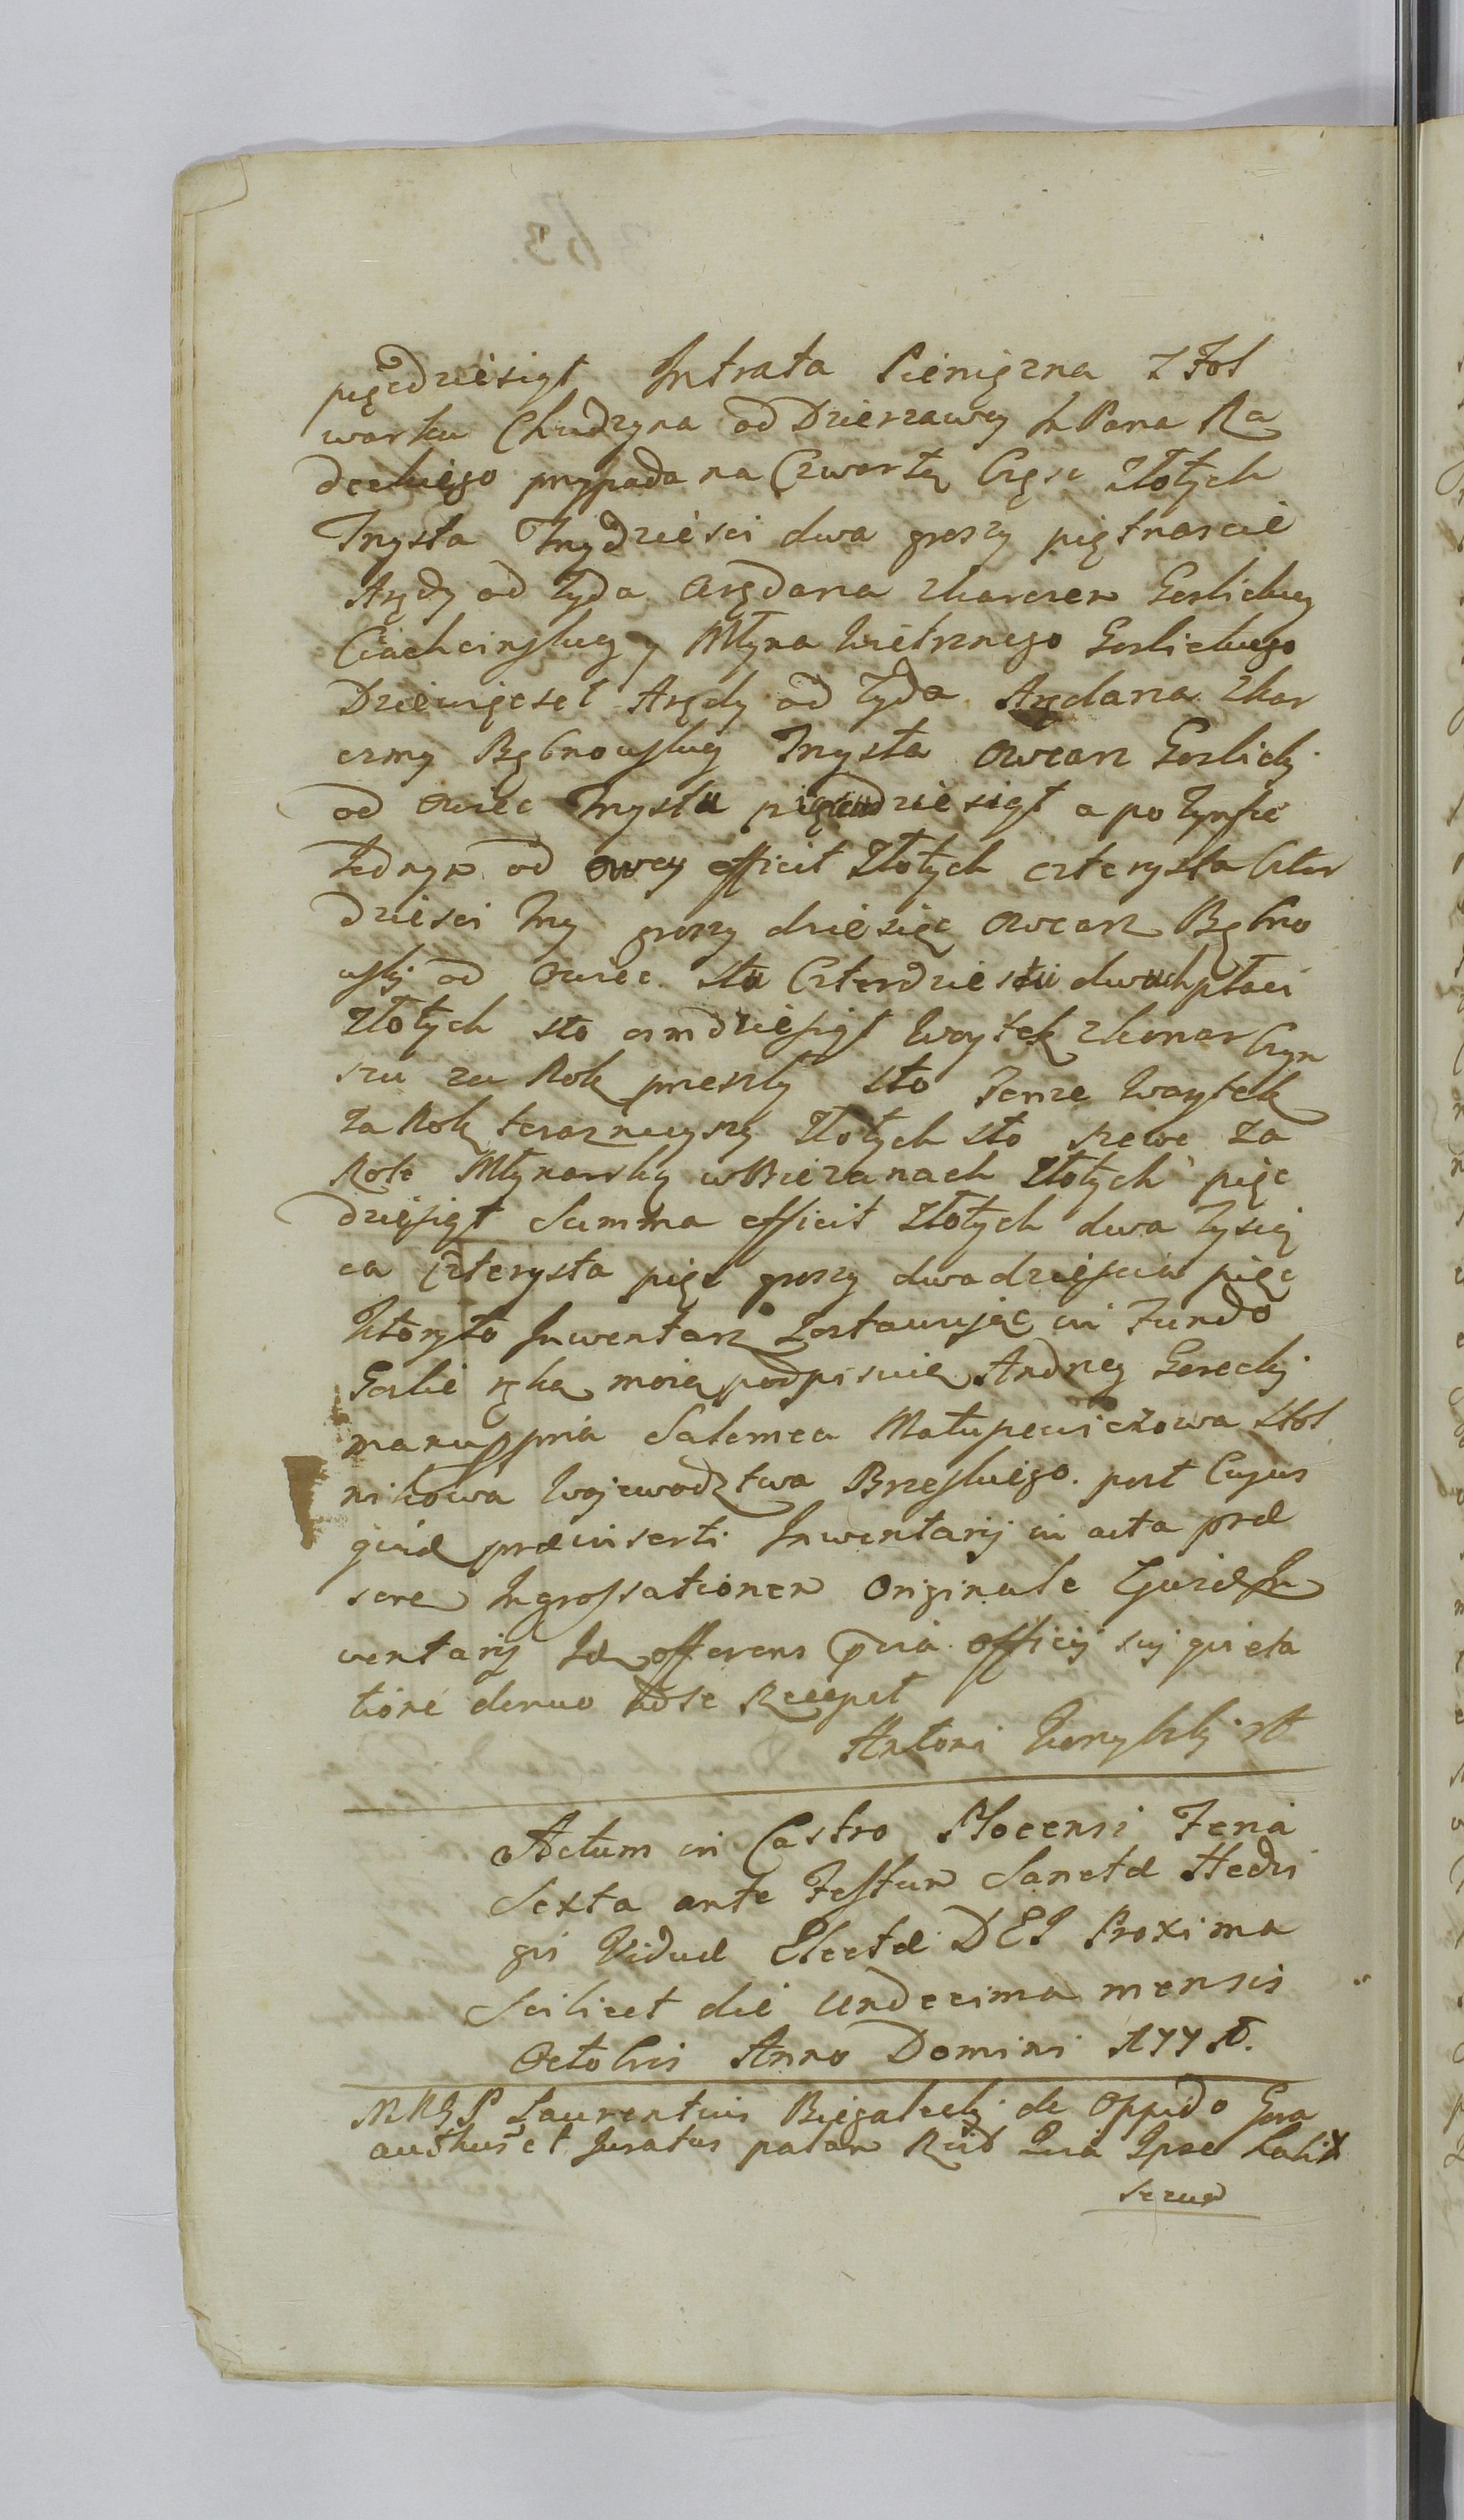 pięcdziesiąt Intrata Pieniężna z Fol
warku Chudzyna od Dzierzawy Im Pana Ra
deckiego przypada na Czwartą Częsc Złotych
Trzysta Trzydziesci dwa groszy piętnascie
Arędy od Zyda Arędarza z karczem Goslickiey
Ciachcinskiey y Młyna Wietrznego Goslickiego
Dziewięcset Arędy od Zyda Arędarza z kar
czmy Bębnowskiey Trzysta Owcarz Goslicki
od Owiec Trzystu pięciudziesiąt a po Tynfie
Jednym od owcy efficit Złotych czterysta Czter
dziesci Trzy groszy dziesięc Owcarz Bębno
wski od Owiec Stu Czterdziestu dwuch płaci
Złotych sto osmdziesiąt Woytek z komor Czyn
szu za Rok przeszły sto Tenze Woytek
za Rok teraznieyszy Złotych sto szewc za
Rolę Młynarską w Biezanach Złotych pięc
dziesiąt Summa efficit Złotych dwa Tysią
ca Czterysta pięc groszy dwadziescia pięc
Ktory to Inwentarz zostawując in Fundo
Goslic ręką moią podpisuię Andrzey Gorecki
manu ppria Salomea Małupewiczowa Stol
nikowa Wojewodztwa Brzeskiego. post Cujus
quid præinserti Inwentarij in acta præ
sens Ingrossationem Originale Ejusd In
ventarij Id offerens pcia officij sui quieta
tione denuo ad se Recepit
Antoni
Actum in Castro Plocensi Feria
Sexta ante Festum Sanctæ Hedvi
gis Viduæ Electæ DEI Proxima
Scilicet die Undecima mensis
Octobris Anno Domini
Laurentius Biegalski de Oppido Gora
et Juratus palam Quia Ipse